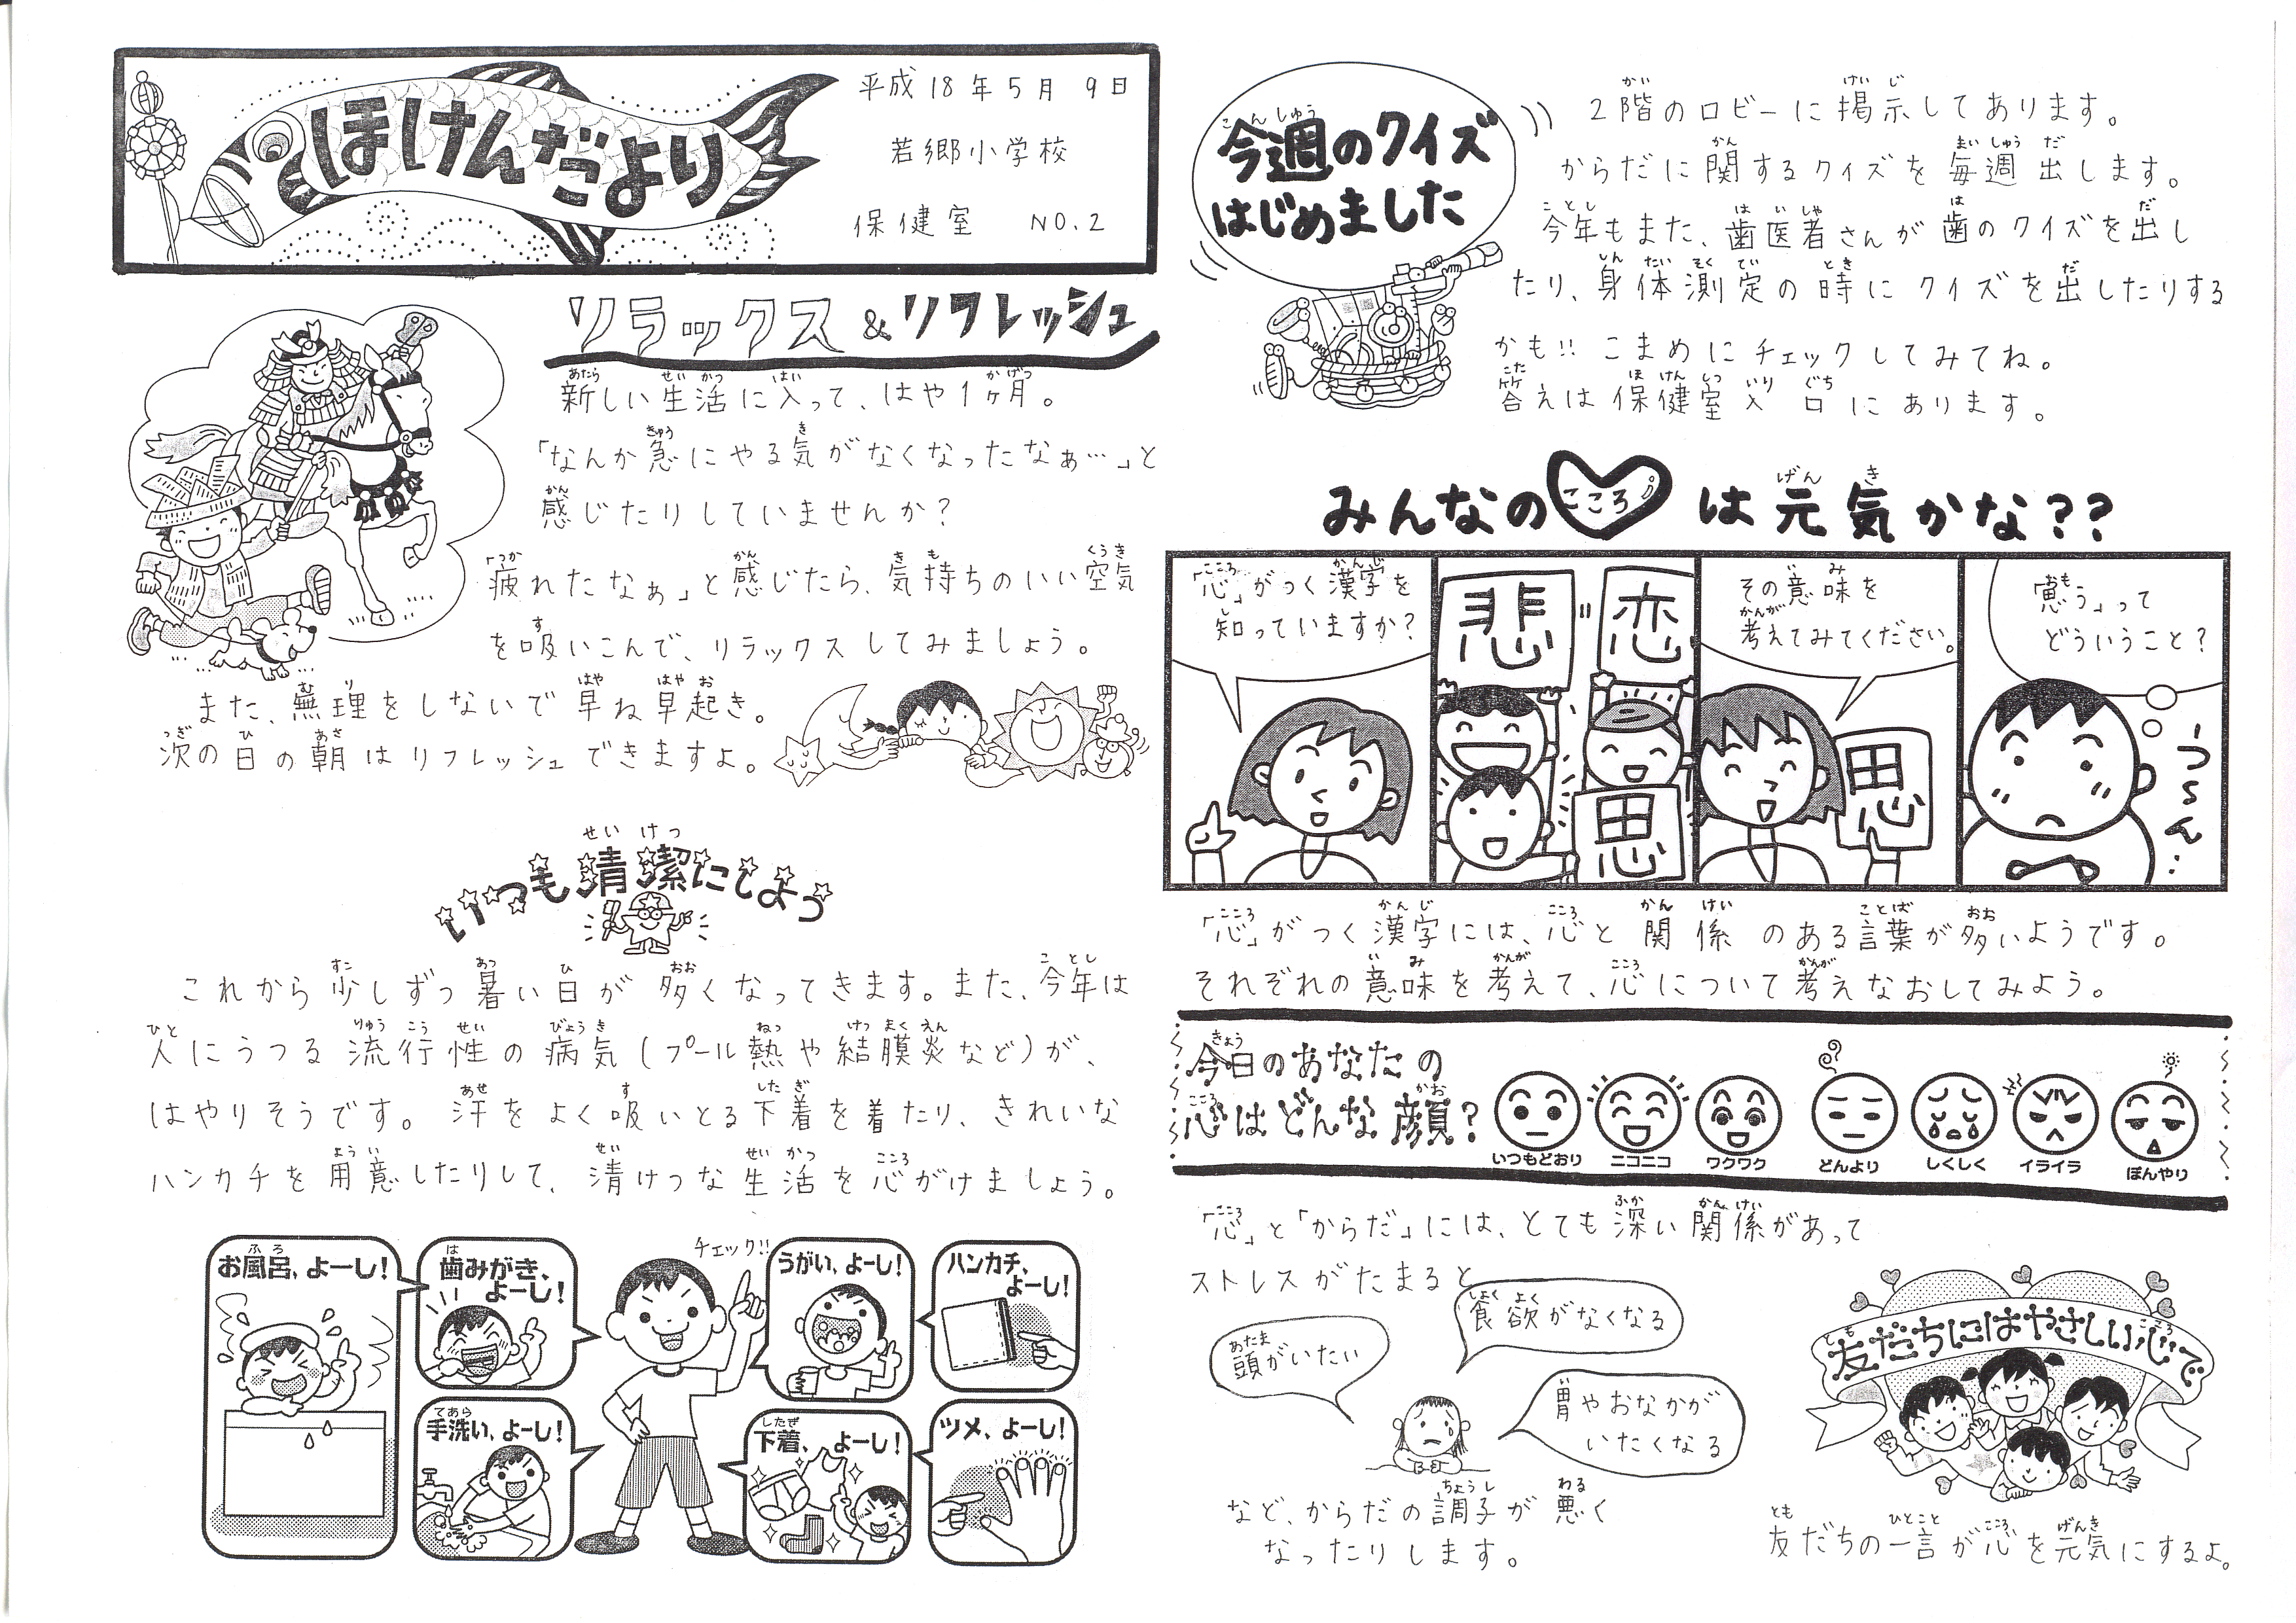 ほけんだより
平成18年5月9日
若郷小学校
保健室 NO.2
リラックス&リフレッシュ
新しい生活に入って、はや1ヶ月。
「なんか急にやる気がなくなったなぁ…」と
感じたりしていませんか?
「疲れたなぁ」と感じたら、気持ちのいい空気
を吸いこんで、リラックスしてみましょう。
また、無理をしないで早ね早起き。
次の日の朝はリフレッシュできますよ。
いつも清潔にしよう
これから少しずつ暑い日が多くなってきます。また、今年は
人にうつる流行性の病気(プール熱や結膜炎など)が、
はやりそうです。汗をよく吸いとる下着を着たり、きれいな
ハンカチを用意したりして、清けつな生活を心がけましょう。
お風呂、よーし!
歯みがき、
よーし!
手洗い、よーし!
チェック!!
うがい、よーし!
ハンカチ、
よーし!
下着、よーし!
ツメ、よーし!
今週のクイズ
はじめました
2階のロビーに掲示してあります。
からだに関するクイズを毎週出します。
今年もまた、歯医者さんが歯のクイズを出し
たり、身体測定の時にクイズを出したりする
かも!! こまめにチェックしてみてね。
答えは保健室入口にあります。
みんなのこころは元気かな??
「心」がつく漢字を
知っていますか?
悲
恋
思
その意味を
考えてみてください。
思
「思う」って
どういうこと?
う〜ん…
「心」がつく漢字には、心と関係のある言葉が多いようです。
それぞれの意味を考えて、心について考えなおしてみよう。
今日のあなたの
心はどんな顔?
いつもどおり
ニコニコ
ワクワク
どんより
しくしく
イライラ
ぼんやり
「心」と「からだ」には、とても深い関係があって
ストレスがたまると
頭がいたい
食欲がなくなる
胃やおなかが
いたくなる
など、からだの調子が悪く
なったりします。
友だちにはやさしい心で
友だちの一言が心を元気にするよ。